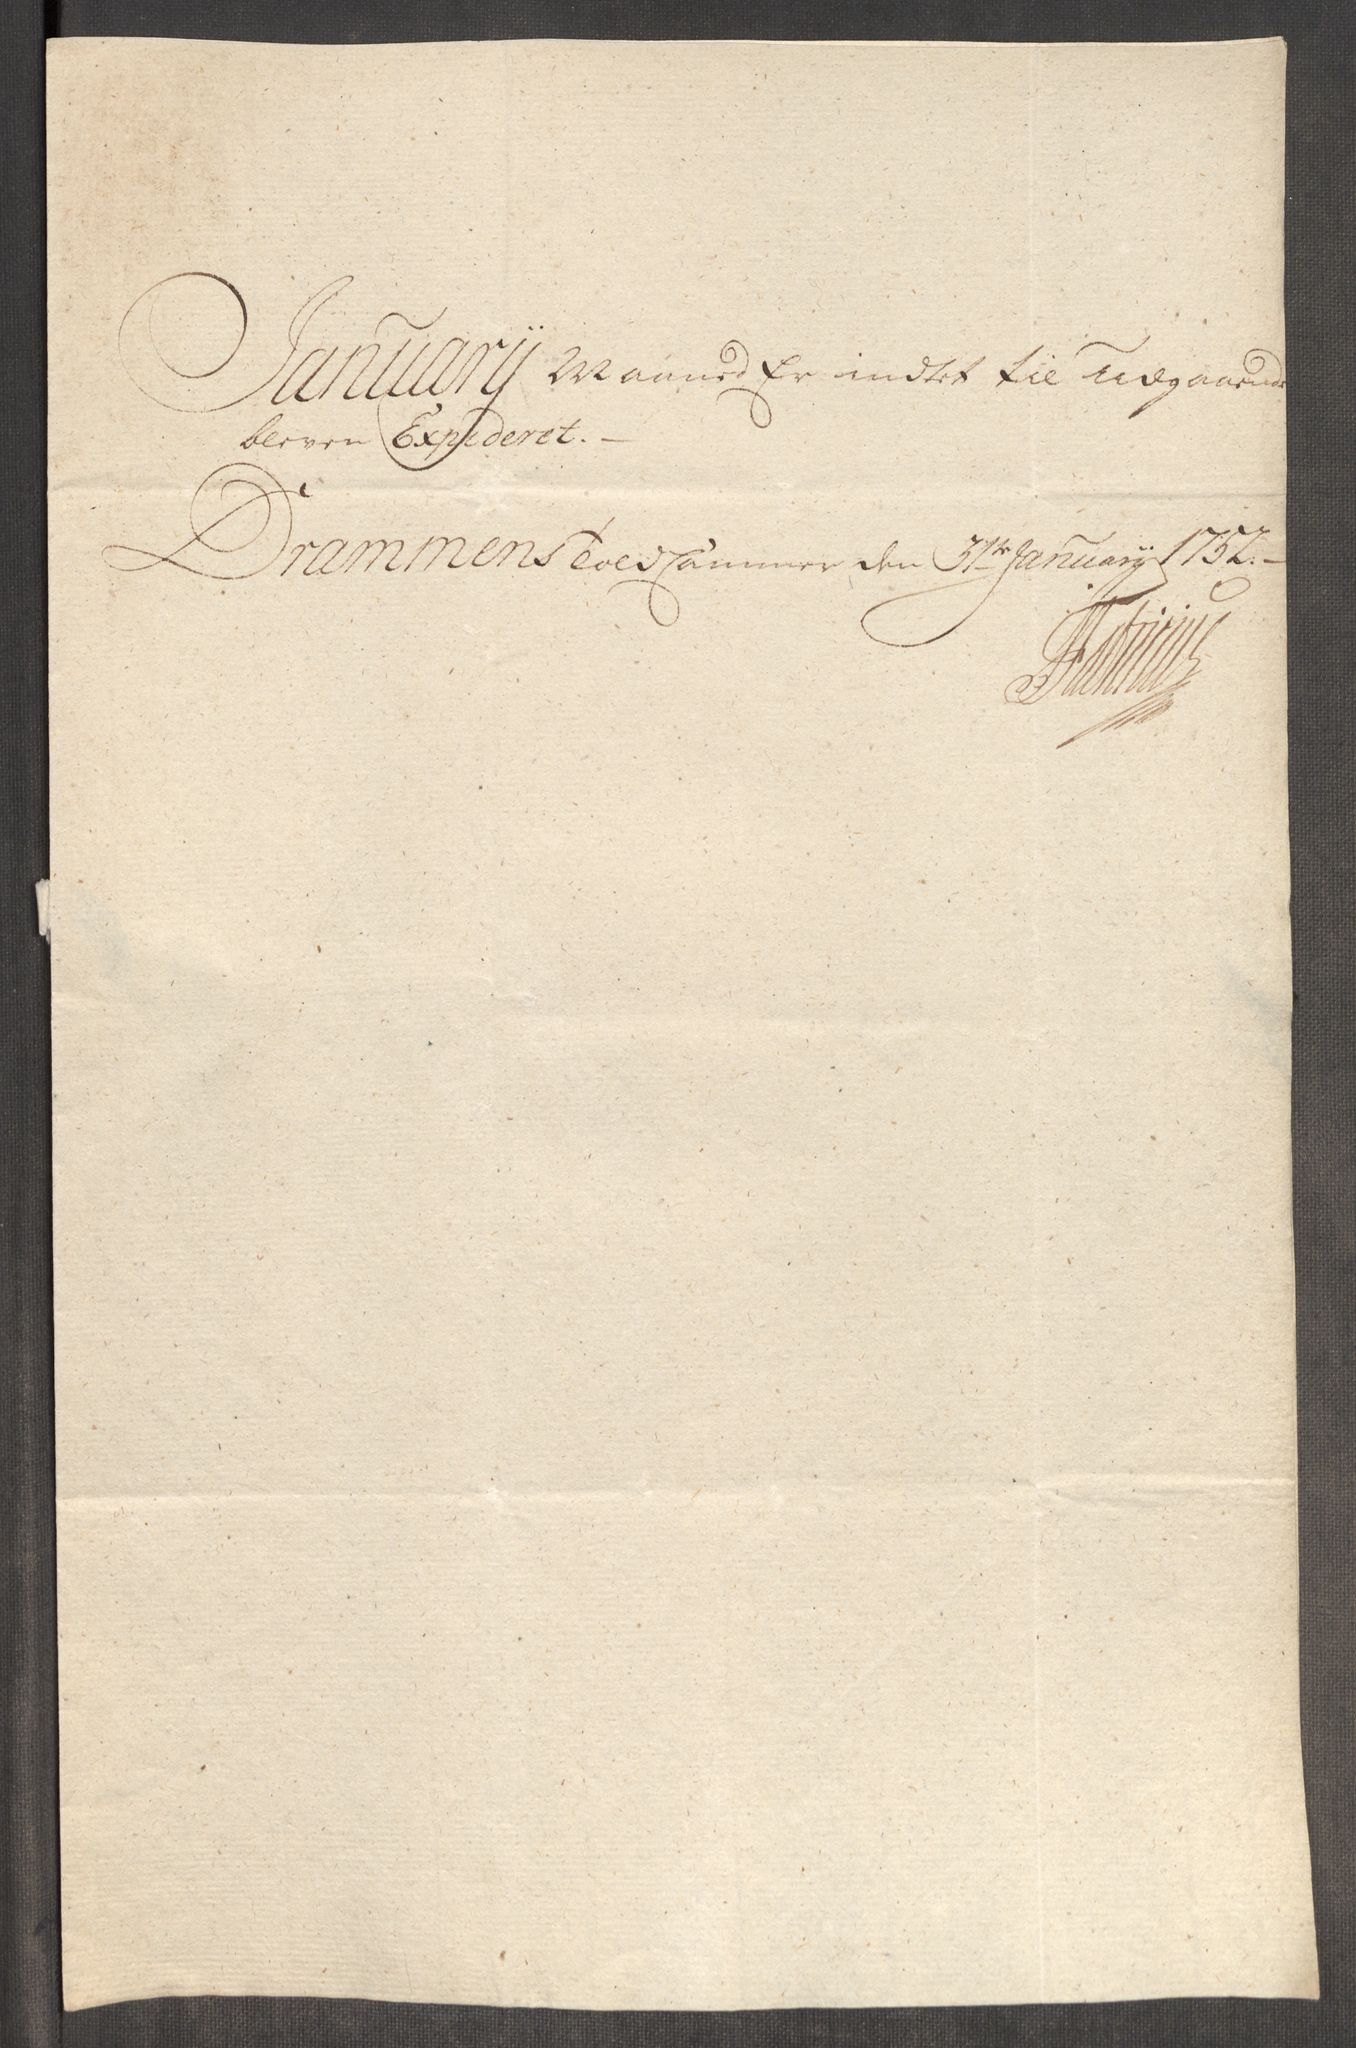 Januarij Maaned Er indtet til Udgaaende
bleven Expederet. –
Drammens Told Cammer den 31te Januarij 1752. –